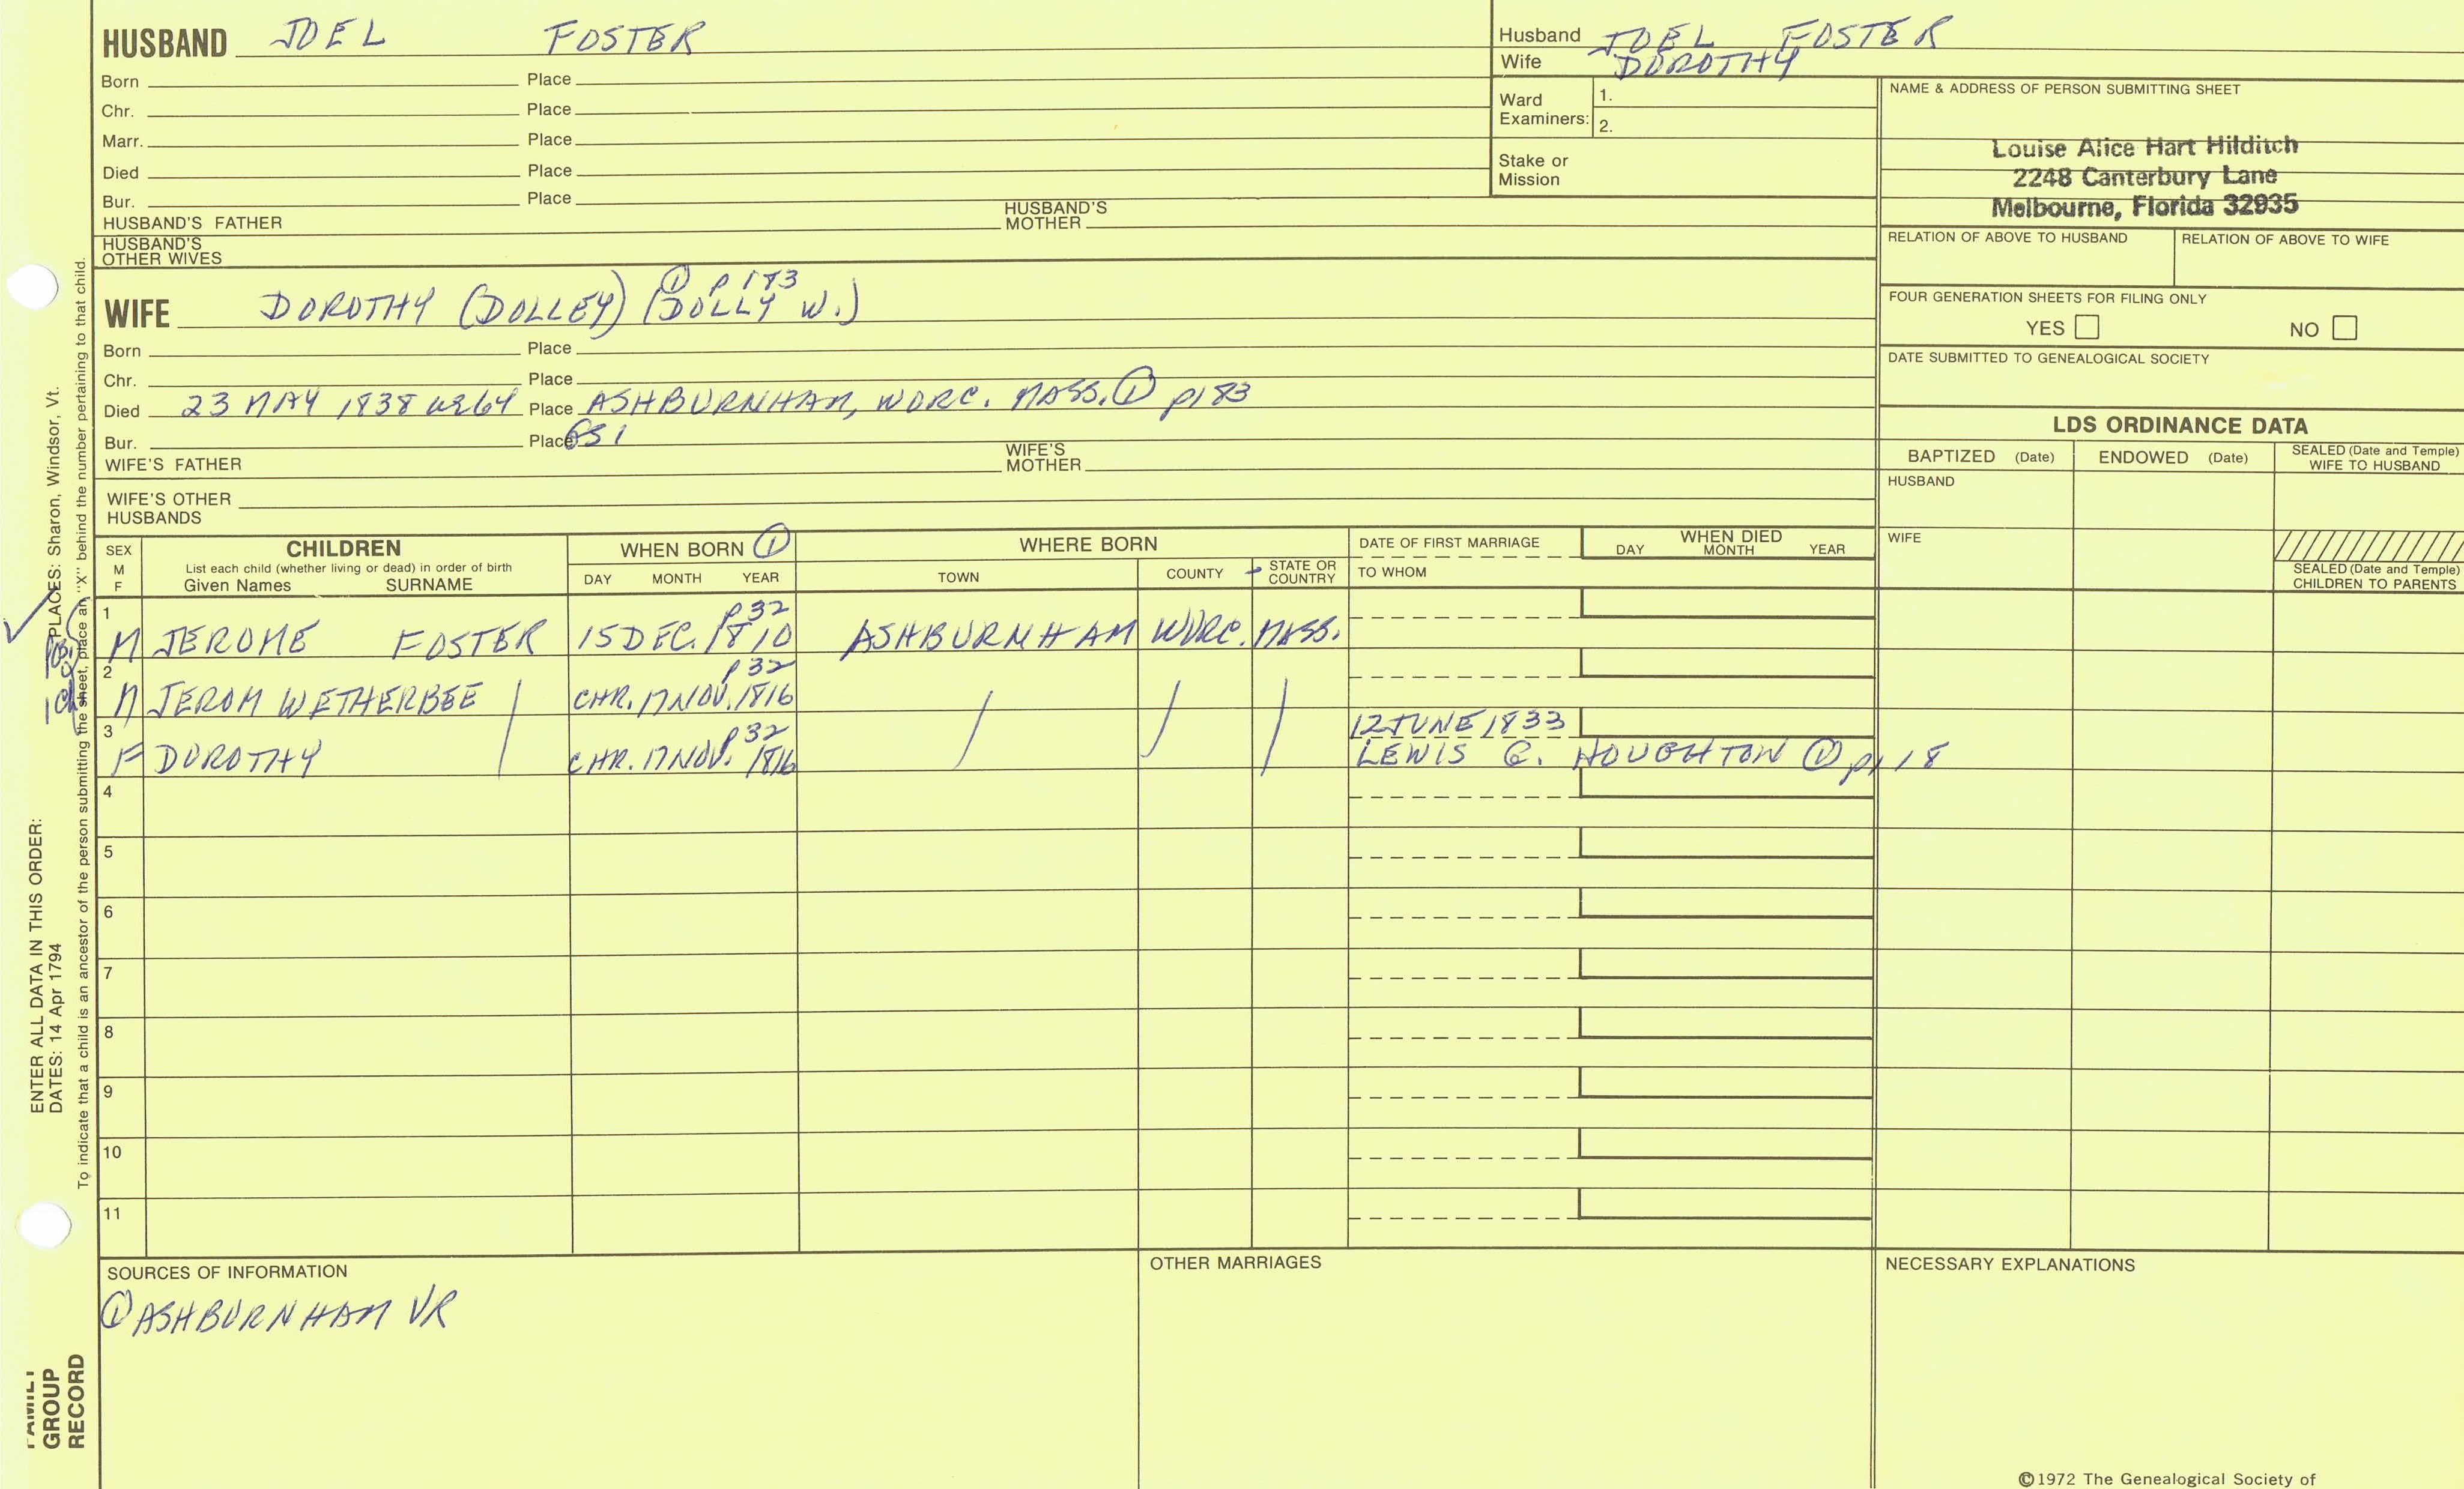 HUSBAND JOEL FOSTER
Born Place
Chr. Place
Marr. Place
Died Place
Bur. Place
HUSBAND'S FATHER HUSBAND'S MOTHER
HUSBAND'S OTHER WIVES
Husband JOEL FOSTER
Wife DOROTHY
Ward Examiners: 1.
2.
Stake or Mission
NAME & ADDRESS OF PERSON SUBMITTING SHEET
Louise Alice Hart Hilditch
2248 Canterbury Lane
Melbourne, Florida 32935
RELATION OF ABOVE TO HUSBAND RELATION OF ABOVE TO WIFE
FOUR GENERATION SHEETS FOR FILING ONLY
YES NO
DATE SUBMITTED TO GENEALOGICAL SOCIETY
① p 183
WIFE DOROTHY (DOLLEY) (DOLLY W.)
Born Place
Chr. Place
Died 23 MAY 1838 64 Place ASHBURNHAM, WORC. MASS. ① p183
Bur. Place
WIFE'S FATHER WIFE'S MOTHER
WIFE'S OTHER HUSBANDS
LDS ORDINANCE DATA
BAPTIZED (Date) ENDOWED (Date) SEALED (Date and Temple) WIFE TO HUSBAND
HUSBAND
WIFE
SEALED (Date and Temple) CHILDREN TO PARENTS
SEX M F
CHILDREN
List each child (whether living or dead) in order of birth
Given Names SURNAME
WHEN BORN ①
DAY MONTH YEAR
WHERE BORN
TOWN COUNTY STATE OR COUNTRY
DATE OF FIRST MARRIAGE
TO WHOM
WHEN DIED
DAY MONTH YEAR
1 p32
M JEROME FOSTER 15 DEC. 1810 ASHBURNHAM WORC. MASS.
2 p32
M JEROM WETHERBEE / CHR. 17 NOV. 1816 / / /
3 p32 12 JUNE 1833
F DOROTHY / CHR. 17 NOV. 1816 LEWIS C. HOUGHTON ① p118
4
5
6
7
8
9
10
11
SOURCES OF INFORMATION
① ASHBURNHAM VR
OTHER MARRIAGES
NECESSARY EXPLANATIONS
©1972 The Genealogical Society of
ENTER ALL DATA IN THIS ORDER:
DATES: 14 Apr 1794 PLACES: Sharon, Windsor, Vt.
To indicate that a child is an ancestor of the person submitting the sheet, place an "X" behind the number pertaining to that child.
FAMILY
GROUP
RECORD